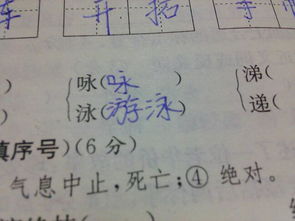 开 拓
) 咏(咏 ) 涕(
) 泳(游泳 ) 递(
填序号)(6分)
气息中止,死亡;④ 绝对。